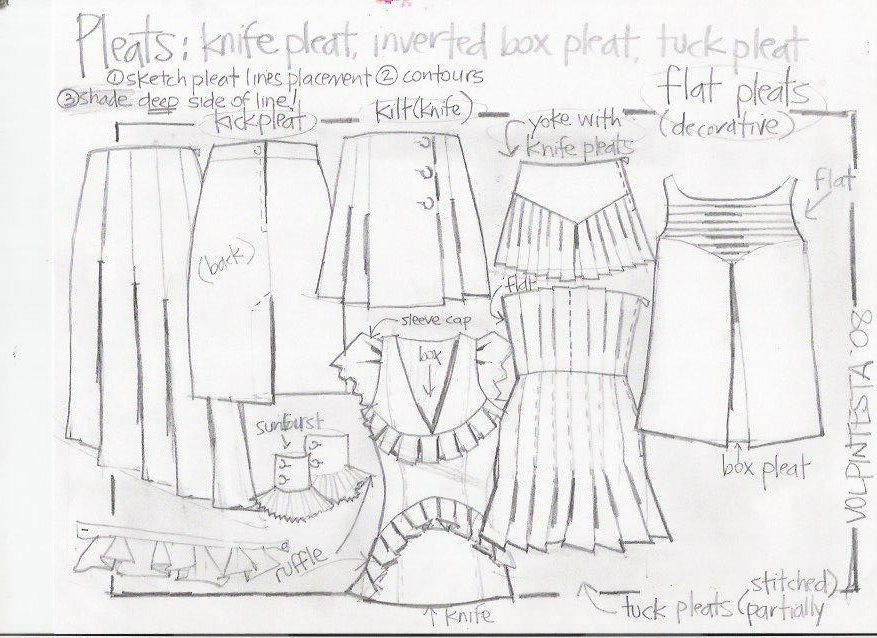 Pleats: knife pleat, inverted box pleat, tuck pleat
①sketch pleat lines placement ② contours
③shade deep side of line!
kickpleat
kilt(knife)
yoke with
knife pleats
flat pleats
(decorative)
flat
(back)
flat
sleeve cap
box
sunburst
box pleat
ruffle
knife
tuck pleats (stitched)
partially
VOLPINTESTA '08